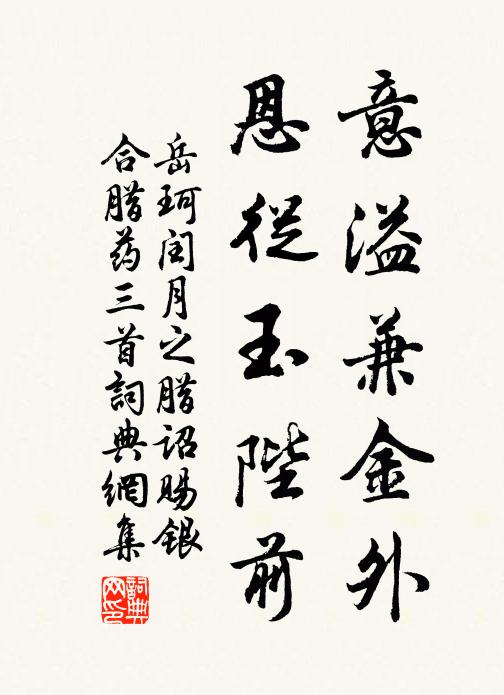 意溢兼金外
恩從玉陛前
岳珂閏月之腊詔賜銀
合腊药三首詞典網集
詞典网印